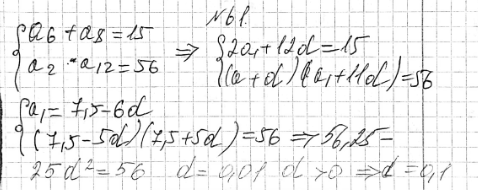 №61.
{a₆ + a₈ = 15 ⇒ {2a₁ + 12d = 15
{a₂ · a₁₂ = 56 {(a + d)(a₁ + 11d) = 56
{a₁ = 7,5 - 6d
{(7,5 - 5d)(7,5 + 5d) = 56 ⇒ 56,25 -
25d² = 56 d = 0,01 d > 0 ⇒ d = 0,1